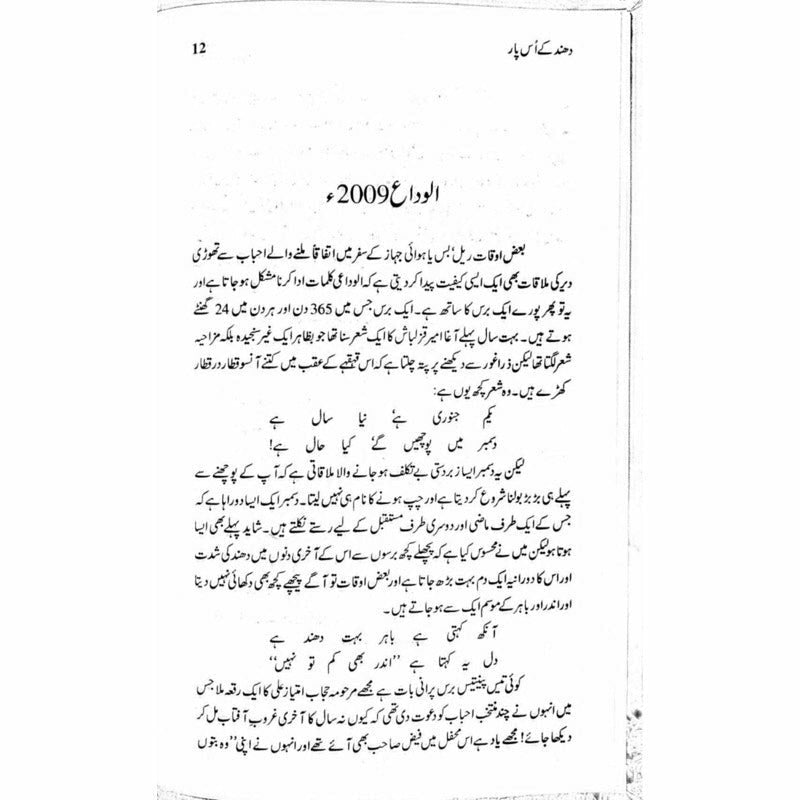 دھند کے اُس پار
12
الوداع 2009ء
بعض اوقات ریل، بس یا ہوائی جہاز کے سفر میں اتفاقاً ملنے والے احباب سے تھوڑی
دیر کی ملاقات بھی ایک ایسی کیفیت پیدا کر دیتی ہے کہ الوداعی کلمات ادا کرنا مشکل ہو جاتا ہے اور
یہ تو پھر پورے ایک برس کا ساتھ ہے۔ ایک برس جس میں 365 دن اور ہر دن میں 24 گھنٹے
ہوتے ہیں۔ بہت سال پہلے آغا امیر قزلباش کا ایک شعر سنا تھا جو بظاہر ایک غیر سنجیدہ بلکہ مزاحیہ
شعر لگتا تھا لیکن ذرا غور سے دیکھنے پر پتہ چلتا ہے کہ اس قہقہے کے عقب میں کتنے آنسو قطار در قطار
کھڑے ہیں۔ وہ شعر کچھ یوں ہے:
یکم جنوری ہے، نیا سال ہے
دسمبر میں پوچھیں گے، کیا حال ہے!
لیکن یہ دسمبر ایسا زبردستی بے تکلف ہو جانے والا ملاقاتی ہے کہ آپ کے پوچھنے سے
پہلے ہی بڑبڑ بولنا شروع کر دیتا ہے اور چپ ہونے کا نام ہی نہیں لیتا۔ دسمبر ایک ایسا دوراہا ہے کہ
جس کے ایک طرف ماضی اور دوسری طرف مستقبل کے لیے رستے نکلتے ہیں۔ شاید پہلے بھی ایسا
ہوتا ہو لیکن میں نے محسوس کیا ہے کہ پچھلے کچھ برسوں سے اس کے آخری دنوں میں دھند کی شدت
اور اس کا دورانیہ ایک دم بہت بڑھ جاتا ہے اور بعض اوقات تو آگے پیچھے کچھ بھی دکھائی نہیں دیتا
اور اندر اور باہر کے موسم ایک سے ہو جاتے ہیں۔
آنکھ کہتی ہے باہر بہت دھند ہے
دل یہ کہتا ہے ”اندر بھی کم تو نہیں“
کوئی تیس پینتیس برس پرانی بات ہے مجھے مرحومہ حجاب امتیاز علی کا ایک رقعہ ملا جس
میں انہوں نے چند منتخب احباب کو دعوت دی تھی کہ کیوں نہ سال کا آخری غروبِ آفتاب مل کر
دیکھا جائے! مجھے یاد ہے اس محفل میں فیض صاحب بھی آئے تھے اور انہوں نے اپنی ”وہ بتوں